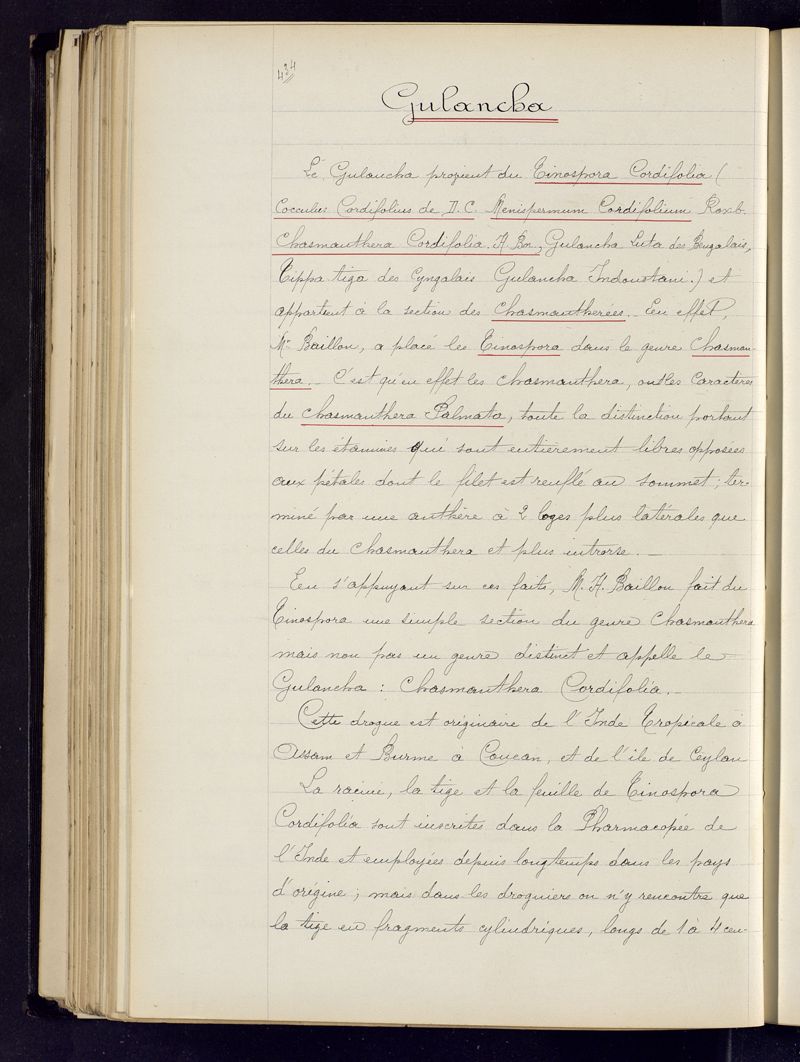 434
Gulancha
Le Gulancha provient du Tinospora Cordifolia (
Cocculus Cordifolius de D.C. Menispermum Cordifolium Roxb.
Chasmanthera Cordifolia. H. Bn, Gulancha Luta des Bengalais,
Tippa tiga des Cyngalais Gulancha Indoustani.) et
appartient à la section des Chasmantherées. En effet,
Mr Baillon, a placé les Tinospora dans le genre Chasman-
thera. C'est qu'en effet les Chasmanthera, ont les caractères
du Chasmanthera Palmata, toute la distinction portant
sur les étamines qui sont entièrement libres opposées
aux pétales dont le filet est renflé au sommet; ter-
miné par une anthère à 2 loges plus latérales que
celles du Chasmanthera et plus introrse. —
En s'appuyant sur ces faits, M. H. Baillon fait du
Tinospora une simple section du genre Chasmanthera
mais non pas un genre distinct et appelle le
Gulancha : Chasmanthera Cordifolia. —
Cette drogue est originaire de l'Inde Tropicale à
Assam et Burme à Concan, et de l'ile de Ceylan
La racine, la tige et la feuille de Tinospora
Cordifolia sont inscrites dans la Pharmacopée de
l'Inde et employées depuis longtemps dans les pays
d'origine ; mais dans les droguiers on n'y rencontre que
la tige en fragments cylindriques, longs de 1 à 4 cen-